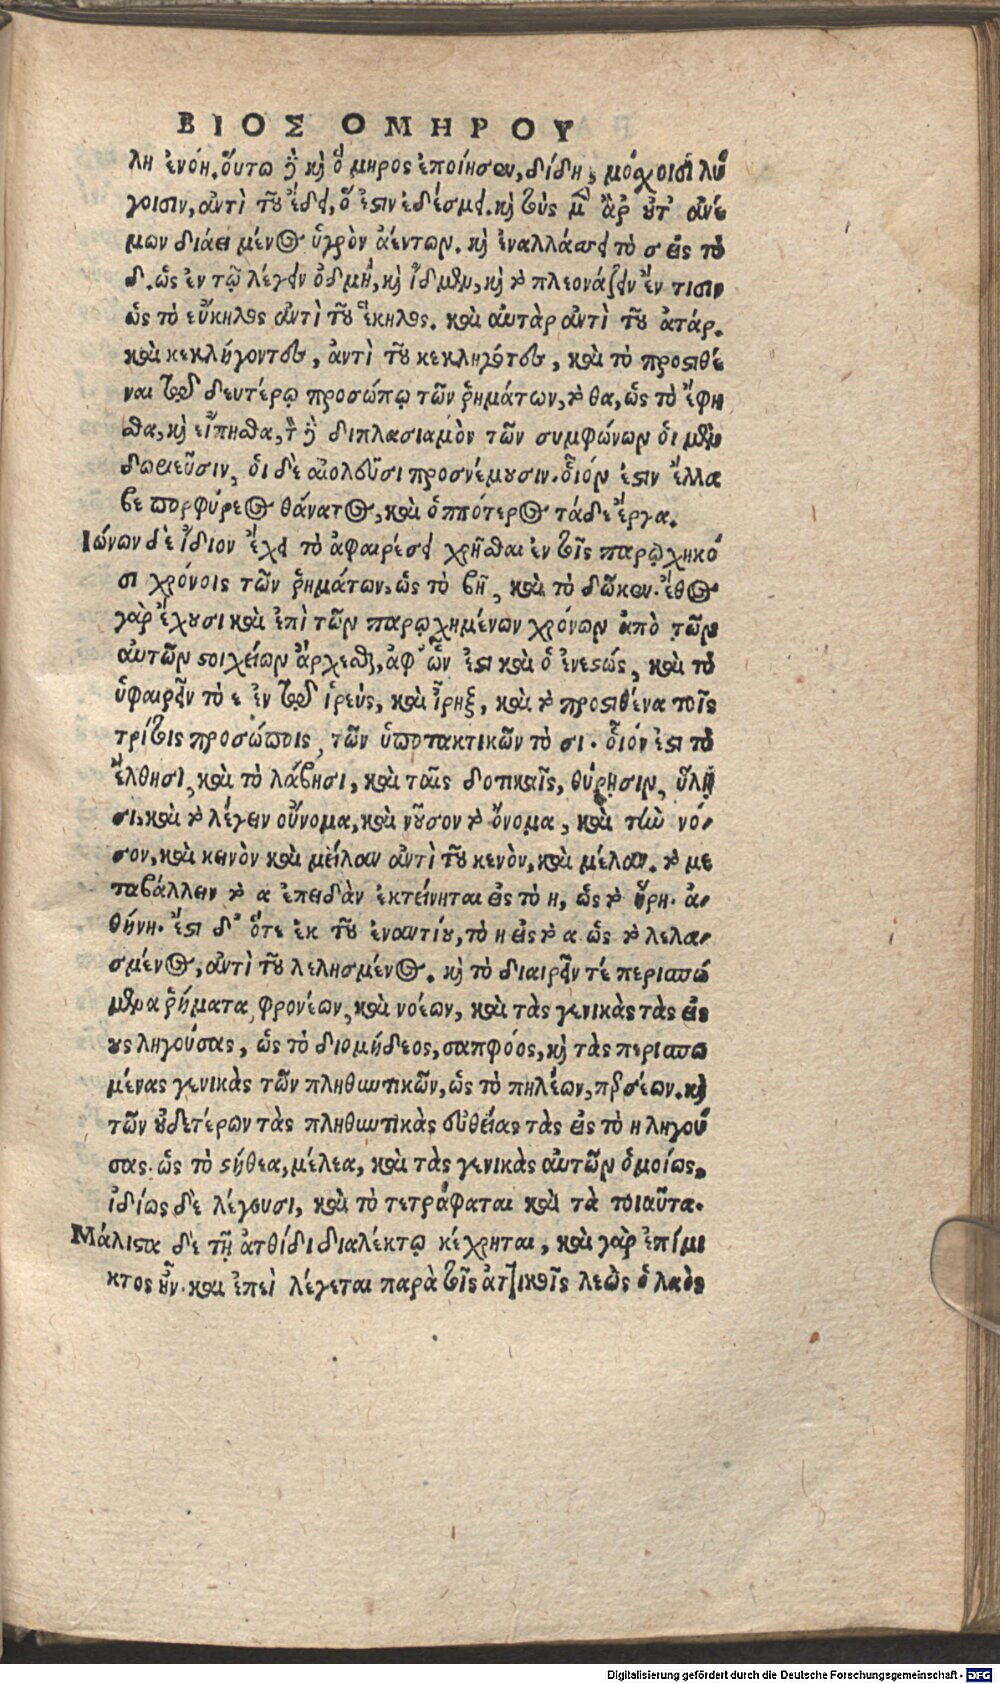 ΒΙΟΣ ΟΜΗΡΟΥ
λη ἐνόη. οὕτω δὲ καὶ ὅμηρος ἐποίησεν, δίδη, μόσχοισι λύ
γοισιν, ἀντὶ τοῦ ἔδει, ὅ ἐστιν ἐδέσμει. καὶ τοὺς μὲν ἂρ οὔτ' ἀνέ
μων διάει μένος ὑγρὸν ἀέντων. καὶ ἐναλλάσσει τὸ σ εἰς τὸ
δ. ὡς ἐν τῷ λέγειν ὀδμὴ, καὶ ἴδμεν, καὶ τὸ πλεονάζειν ἔν τισιν
ὡς τὸ εὔκηλος ἀντὶ τοῦ ἔκηλος. καὶ αὐτὰρ ἀντὶ τοῦ ἀτάρ.
καὶ κεκλήγοντες, ἀντὶ τοῦ κεκληγότες, καὶ τὸ προστιθέ
ναι τῷ δευτέρῳ προσώπῳ τῶν ῥημάτων, τὸ θα, ὡς τὸ ἔφη
σθα, καὶ εἴπησθα, τὸν δὲ διπλασιασμὸν τῶν συμφώνων οἱ μὲν
δωριεῦσιν, οἱ δὲ αἰολεῦσι προσνέμουσιν. οἷόν ἐστιν ἔλλα
βε πορφύρεος θάνατος, καὶ ὁππότερος τάδε ἔργα.
Ἰώνων δὲ ἴδιον ἔχει τὸ ἀφαιρέσει χρῆσθαι ἐν τοῖς παρῳχηκό
σι χρόνοις τῶν ῥημάτων, ὡς τὸ βῆ, καὶ τὸ δῶκεν. ἔθος
γὰρ ἔχουσι καὶ ἐπὶ τῶν παρῳχημένων χρόνων ἀπὸ τῶν
αὐτῶν στοιχείων ἄρχεσθαι, ἀφ' ὧν ἐστι καὶ ὁ ἐνεστώς, καὶ τὸ
ὑφαιρεῖν τὸ ε ἐν τῷ ἱρεύς, καὶ ἴρηξ, καὶ τὸ προστιθέναι τοῖς
τρίτοις προσώποις, τῶν ὑποτακτικῶν τὸ σι. οἷόν ἐστι τὸ
ἔλθησι, καὶ τὸ λάβησι, καὶ ταῖς δοτικαῖς, θύρῃσιν, ὕλῃ
σι. καὶ τὸ λέγειν οὔνομα, καὶ νοῦσον τὸ ὄνομα, καὶ τὴν νό-
σον, καὶ κεινὸν καὶ μείλαν ἀντὶ τοῦ κενὸν, καὶ μέλαν. τὸ με
ταβάλλειν τὸ α ἐπειδὰν ἐκτείνηται εἰς τὸ η, ὡς τὸ ὥρη. ἀ-
θήνη. ἔστι δ' ὅτε ἐκ τοῦ ἐναντίου, τὸ η εἰς τὸ α ὡς τὸ λελα-
σμένος, ἀντὶ τοῦ λελησμένος. καὶ τὸ διαιρεῖν τέ περισπώ
μενα ῥήματα, φρονέων, καὶ νοέων, καὶ τὰς γενικὰς τὰς εἰς
ους ληγούσας, ὡς τὸ διομήδεος, σαπφόος, καὶ τὰς περισπω
μένας γενικὰς τῶν πληθυντικῶν, ὡς τὸ πηλέων, περσέων. καὶ
τῶν οὐδετέρων τὰς πληθυντικὰς εὐθείας τὰς εἰς τὸ η ληγού
σας. ὡς τὸ στήθεα, μέλεα, καὶ τὰς γενικὰς αὐτῶν ὁμοίως.
ἰδίως δὲ λέγουσι, καὶ τὸ τετράφαται καὶ τὰ τοιαῦτα.
Μάλιστα δὲ τῇ ἀτθίδι διαλέκτῳ κέχρηται, καὶ γὰρ ἐπίμι
κτος ἦν. καὶ ἐπεὶ λέγεται παρὰ τοῖς ἀττικοῖς λεὼς ὁ λαὸς
Digitalisierung gefördert durch die Deutsche Forschungsgemeinschaft - DFG